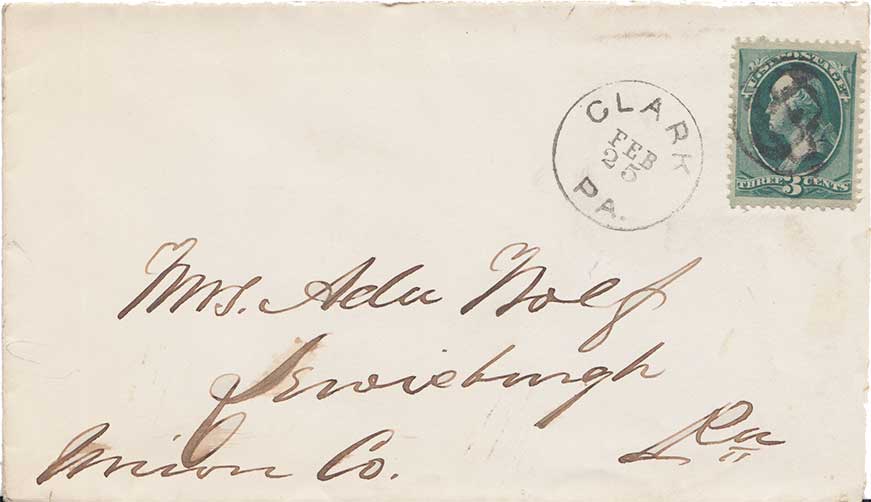 U.S. POSTAGE
THREE 3 CENTS
CLARK
FEB
25
PA.
Mrs. Ada Wolf
Lewisburgh
Union Co. Pa